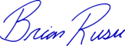 Brian Ruse